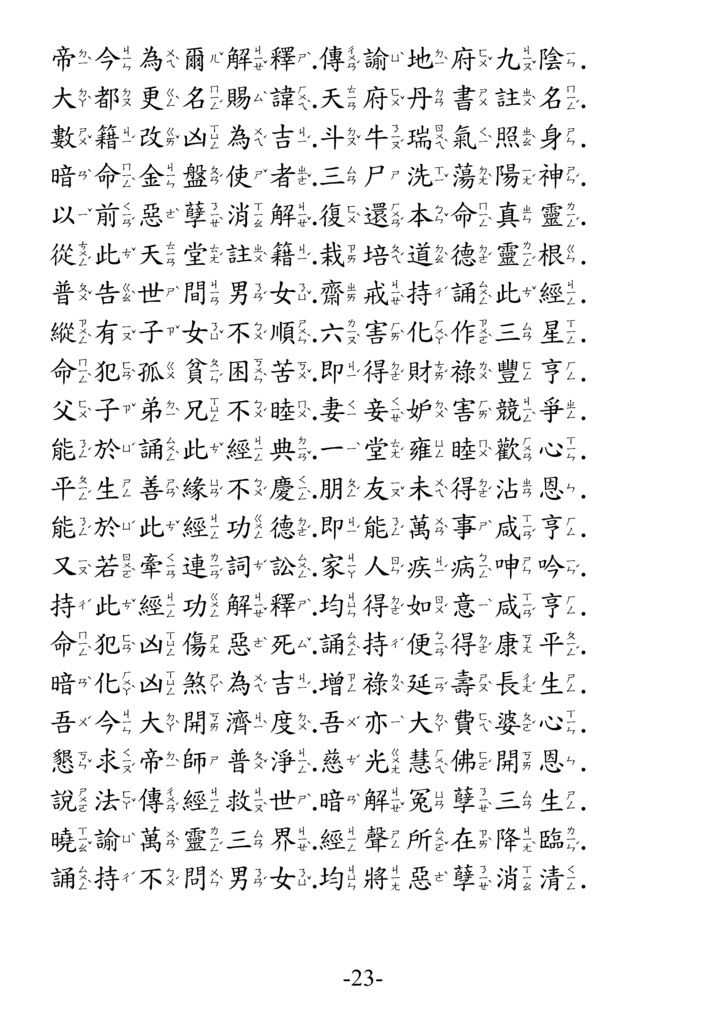 帝今為爾解釋.傳諭地府九陰.
大都更名賜諱.天府丹書註名.
數籍改凶為吉.斗牛瑞氣照身.
暗命金盤使者.三尸洗蕩陽神.
以前惡孽消解.復還本命真靈.
從此天堂註籍.栽培道德靈根.
普告世間男女.齋戒持誦此經.
縱有子女不順.六害化作三星.
命犯孤貧困苦.即得財祿豐亨.
父子弟兄不睦.妻妾妒害競爭.
能於誦此經典.一堂雍睦歡心.
平生善緣不慶.朋友未得沾恩.
能於此經功德.即能萬事咸亨.
又若牽連詞訟.家人疾病呻吟.
持此經功解釋.均得如意咸亨.
命犯凶傷惡死.誦持便得康平.
暗化凶煞為吉.增祿延壽長生.
吾今大開濟度.吾亦大費婆心.
懇求帝師普淨.慈光慧佛開恩.
說法傳經救世.暗解冤孽三生.
曉諭萬靈三界.經聲所在降臨.
誦持不問男女.均將惡孽消清.
-23-